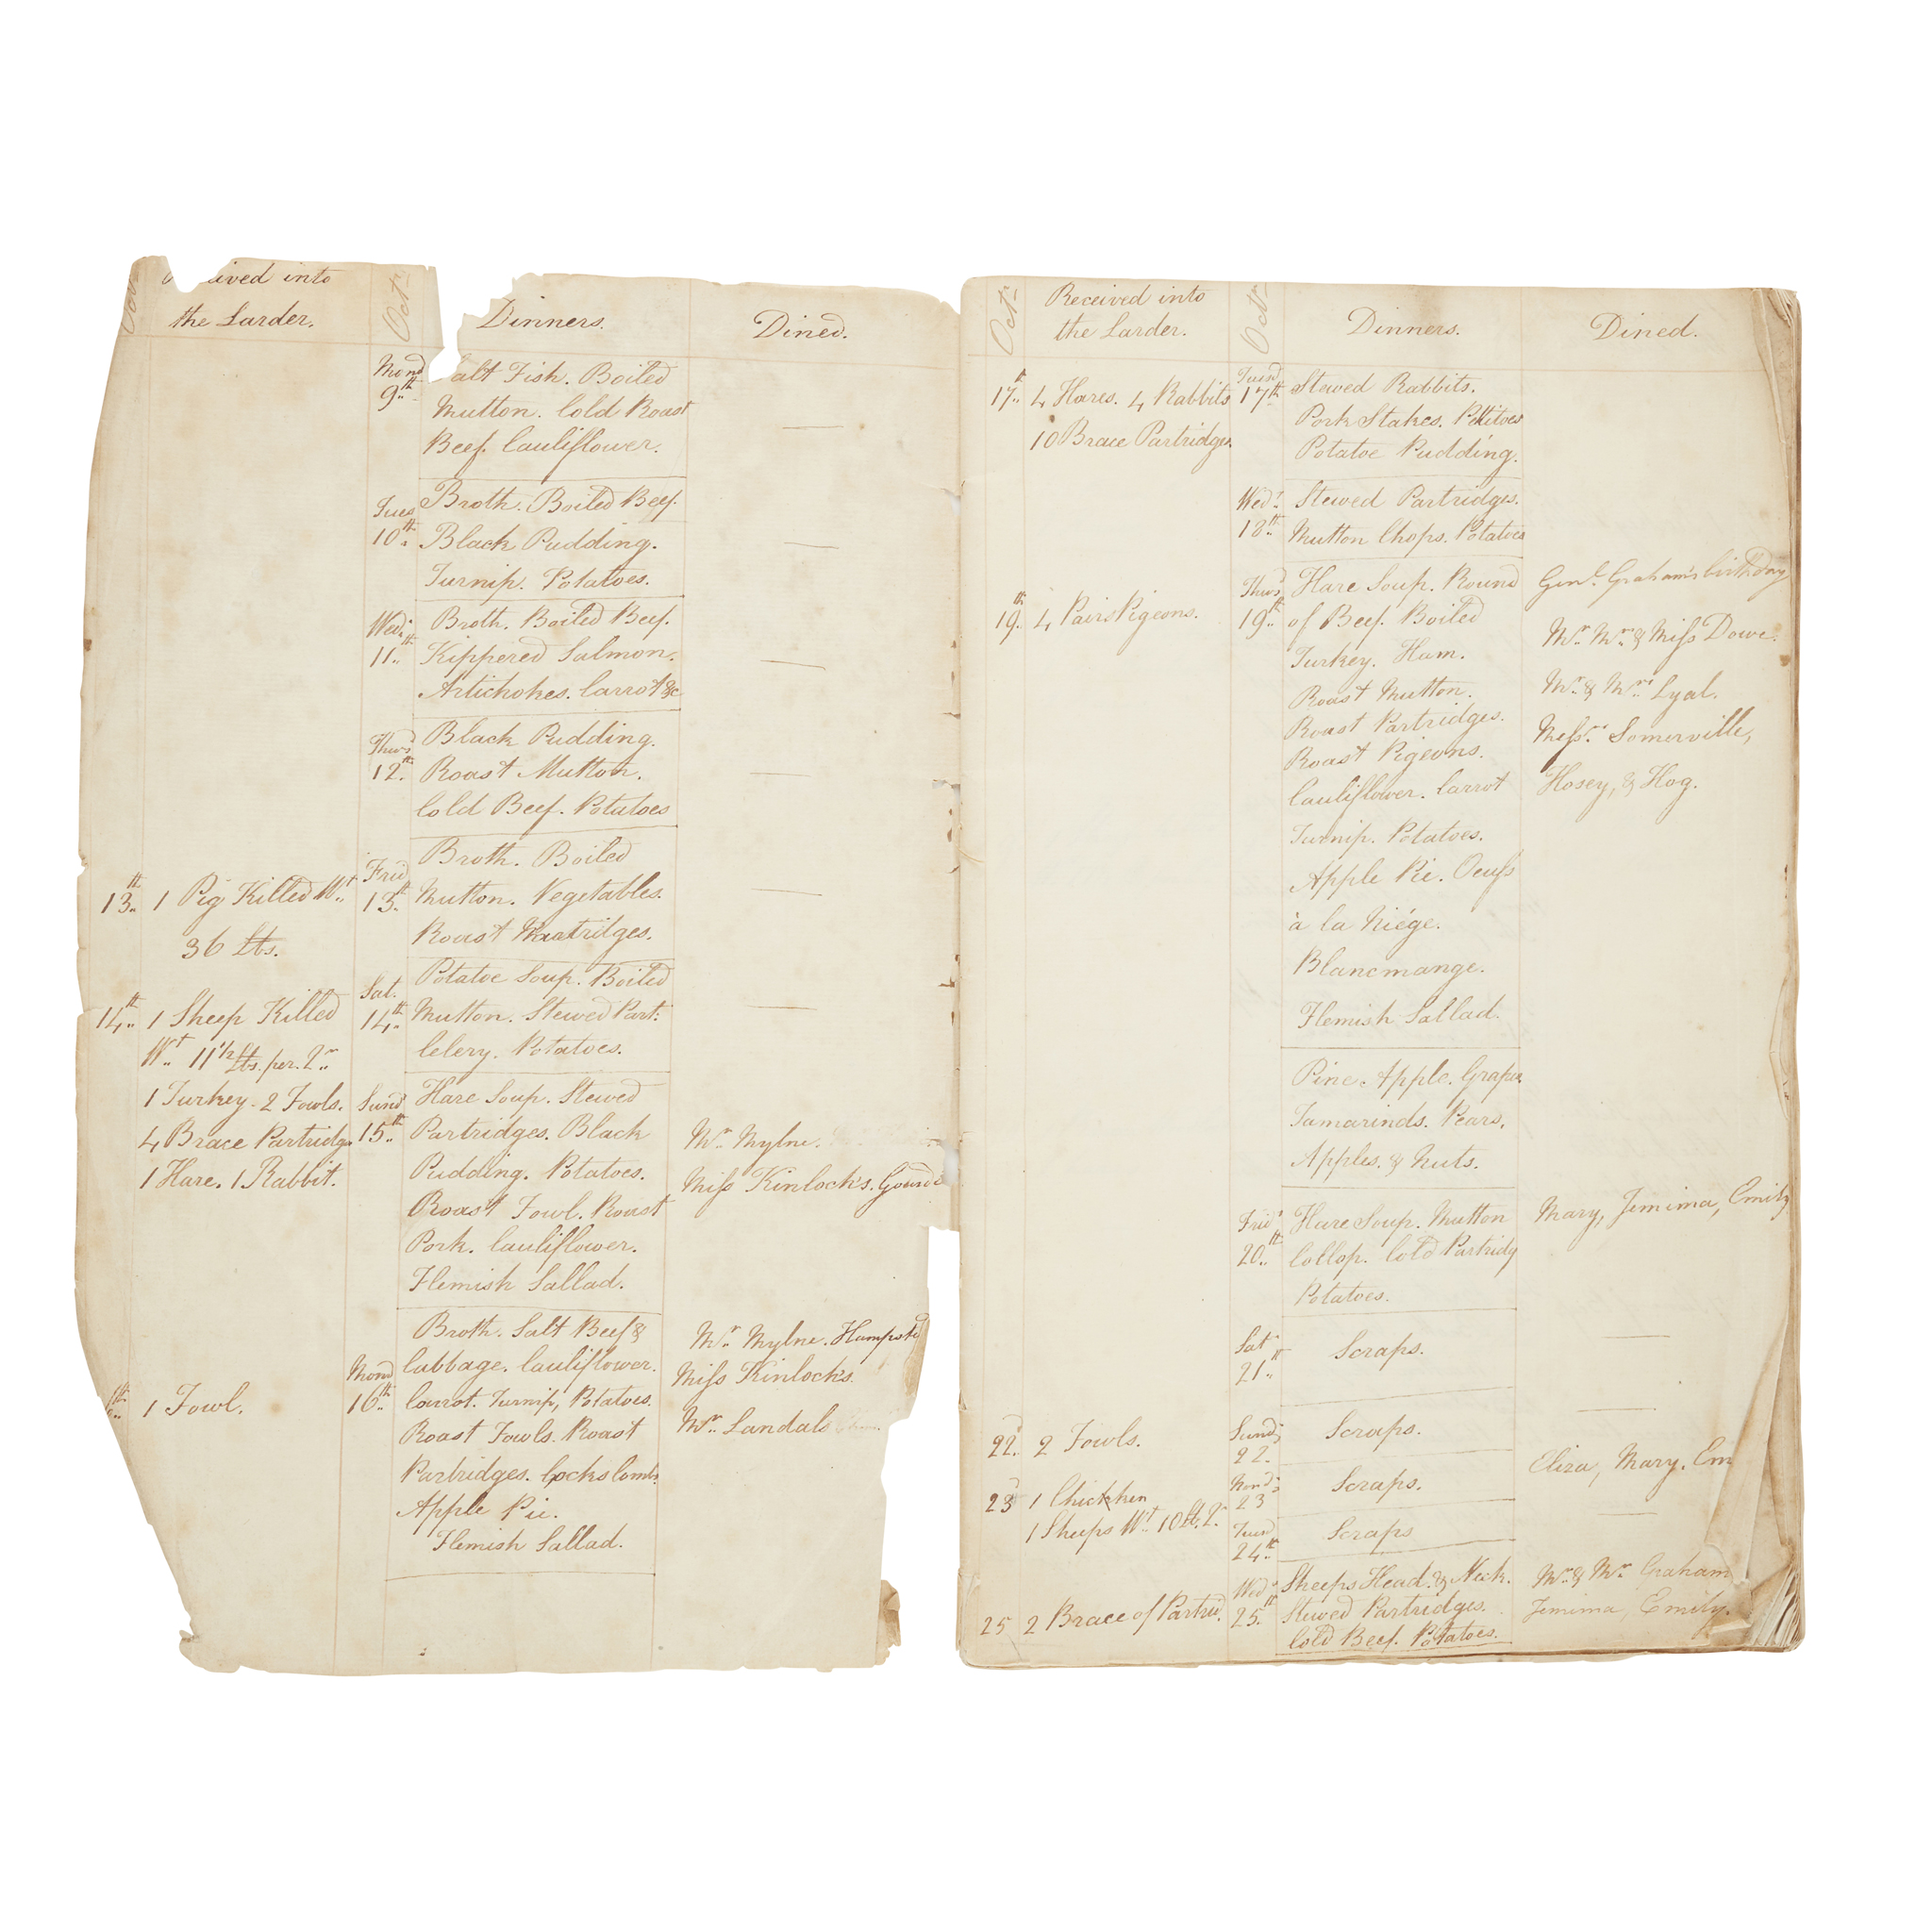 Received into
the Larder.
Oct.r
Dinners.
Dined.
Mond
9..th
Salt Fish. Boiled
Mutton. Cold Roast
Beef. Cauliflower.
Tues
10.th
Broth. Boiled Beef.
Black Pudding.
Turnip. Potatoes.
Wed.
11..th
Broth. Boiled Beef.
Kippered Salmon.
Artichokes. Carrot &c
Thurs
12.th
Black Pudding.
Roast Mutton.
Cold Beef. Potatoes
13..th 1 Pig Killed Wt..
36 lbs.
Frid
13.th
Broth. Boiled
Mutton. Vegetables.
Roast Partridges.
14..th 1 Sheep Killed
Wt.. 11 1/2 lbs. per. 2r..
1 Turkey. 2 Fowls.
4 Brace Partridge
1 Hare. 1 Rabbit.
Sat.
14.th
Potatoe Soup. Boiled
Mutton. Stewed Part.
Celery. Potatoes.
Sund
15..th
Hare Soup. Stewed
Partridges. Black
Pudding. Potatoes.
Roast Fowl. Roast
Pork. Cauliflower.
Flemish Sallad.
Mr.. Mylne.
Miss Kinloch's.
1 Fowl.
Mond
16..th
Broth. Salt Beef &
Cabbage. Cauliflower.
Carrot. Turnip, Potatoes.
Roast Fowls. Roast
Partridges. Cockscombs
Apple Pie.
Flemish Sallad.
Mr.. Mylne.
Miss Kinlocks.
Mr.. Landals
Oct.r
Received into
the Larder.
Oct.r
Dinners.
Dined.
17..th 4 Hares. 4 Rabbits
10 Brace Partridges.
Tuesd
17th
Stewed Rabbits.
Pork Stakes. Pettitoes
Potatoe Pudding.
Wed.
18..th
Stewed Partridges.
Mutton Chops. Potatoes
19.th 4 Pairs Pigeons.
Thurs
19..th
Hare Soup. Round
of Beef. Boiled
Turkey. Ham.
Roast Mutton.
Roast Partridges.
Roast Pigeons.
Cauliflower. Carrot
Turnip. Potatoes.
Apple Pie. Oeufs
à la Niége.
Blancmange.
Flemish Sallad.
Pine. Apple. Grapes.
Tamarinds. Pears,
Apples. & Nuts.
Genl. Graham's birthday
Mr. Mrs. & Miss Dowe.
Mr. & Mrs. Lyal.
Messrs. Somerville,
Hosey, & Hog.
Frid
20..th
Hare Soup. Mutton
Collop. Cold Partridg
Potatoes.
Mary, Jemima, Emily
Sat
21..st
Scraps.
22.d 2 Fowls.
Sund
22.
Scraps.
23d 1 Chickhen
1 Sheeps Wt..
Mond
23
Scraps.
Eliza, Mary, Em
Tuesd
24..th
Scraps
25 2 Brace of Partrid.
Wed
25.th
Sheeps Head. & Neck.
Stewed Partridges.
Cold Beef. Potatoes.
Mr. & Mrs. Graham
Jemima, Emily.